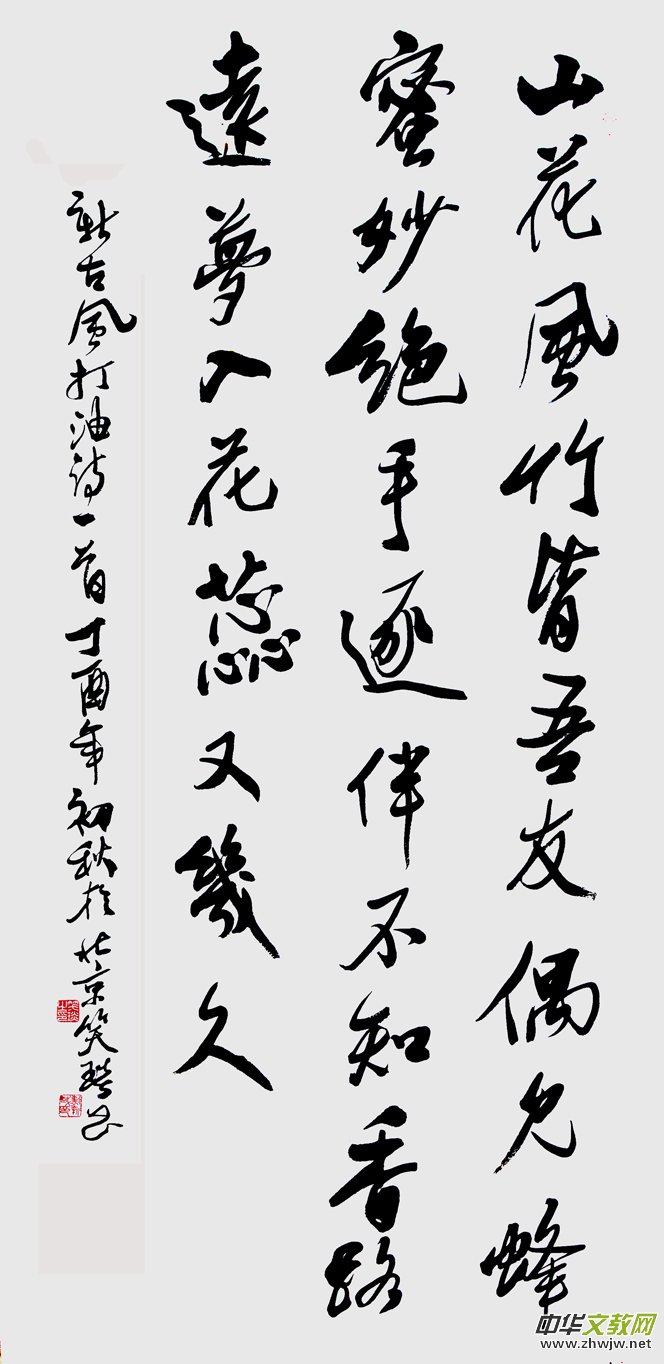 山花風竹皆吾友偶見蜂
蜜妙絕手逐伴不知香路
遠夢入花蕊又幾久
新古風打油詩一首丁酉年初秋於北京笑书
中华文教网
www.zhwjw.net